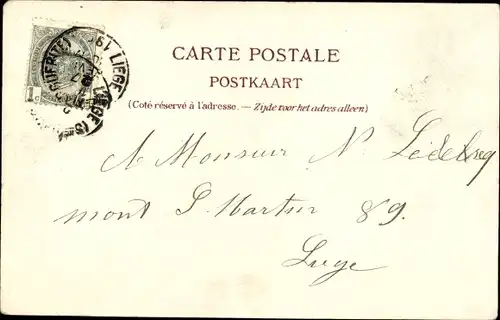 CARTE POSTALE
POSTKAART
(Côté réservé à l'adresse. — Zijde voor het adres alleen)
LIEGE
LIEGE
1
A Monsieur N.
mont S. Martin 89.
Liege